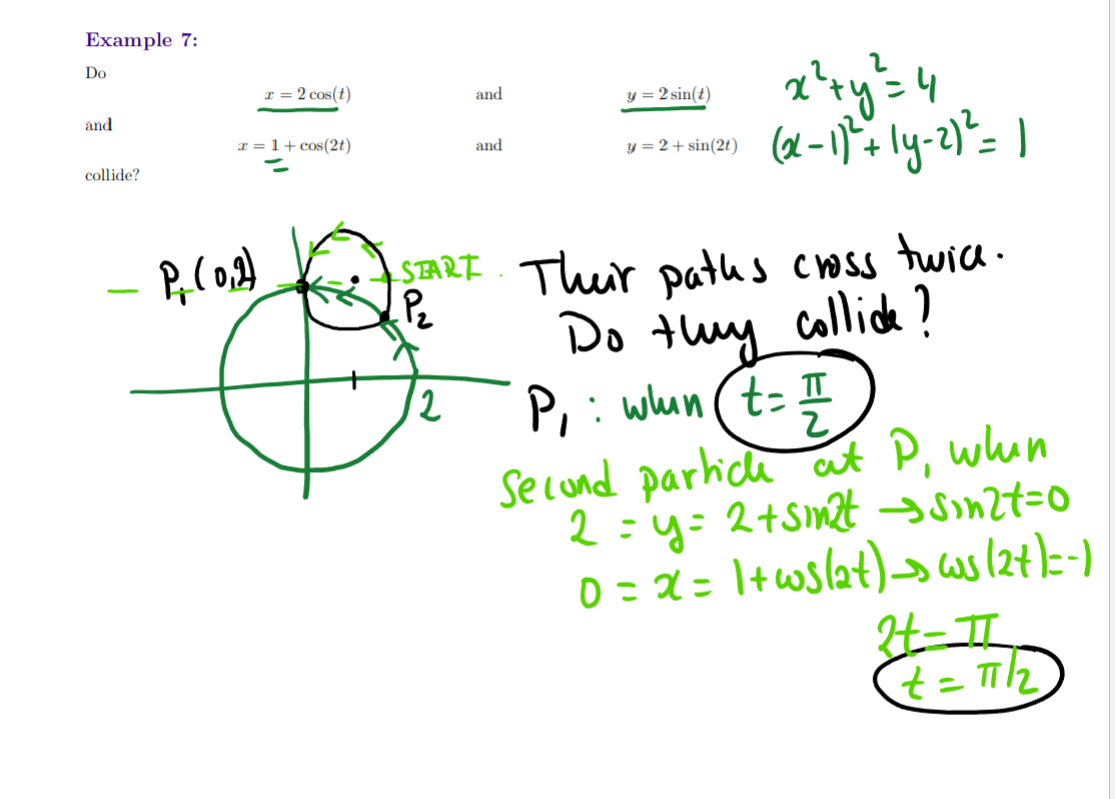 Example 7:
Do
x = 2 cos(t) and y = 2 sin(t)
x² + y² = 4
and
x = 1 + cos(2t) and y = 2 + sin(2t)
(x-1)² + (y-2)² = 1
collide?
P₁(0,2)
START
P₂
2
Their paths cross twice.
Do they collide?
P₁ : when t = π/2
Second particle at P₁ when
2 = y = 2 + sin2t → sin2t=0
0 = x = 1 + cos(2t) → cos(2t)=-1
2t = π
t = π/2